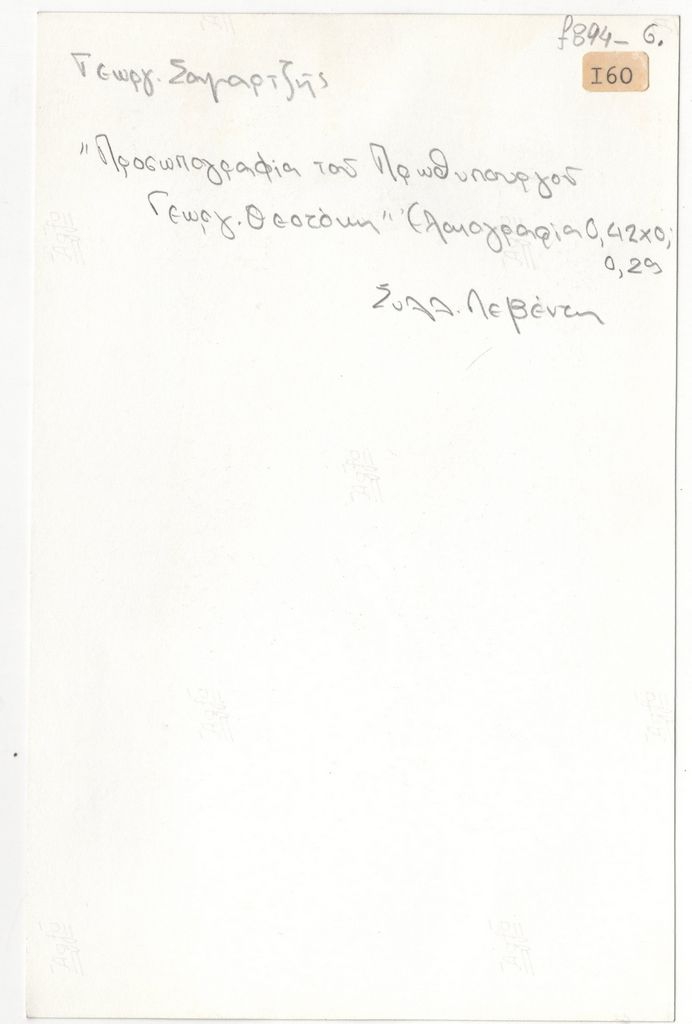 f894- 6.
I60
Γεωργ. Σαμαρτζής
"Προσωπογραφία τοῦ Πρωθυπουργοῦ
Γεωργ. Θεοτόκη" Ἐλαιογραφία 0,42x0,
0,29
Συλλ. Λεβέντη